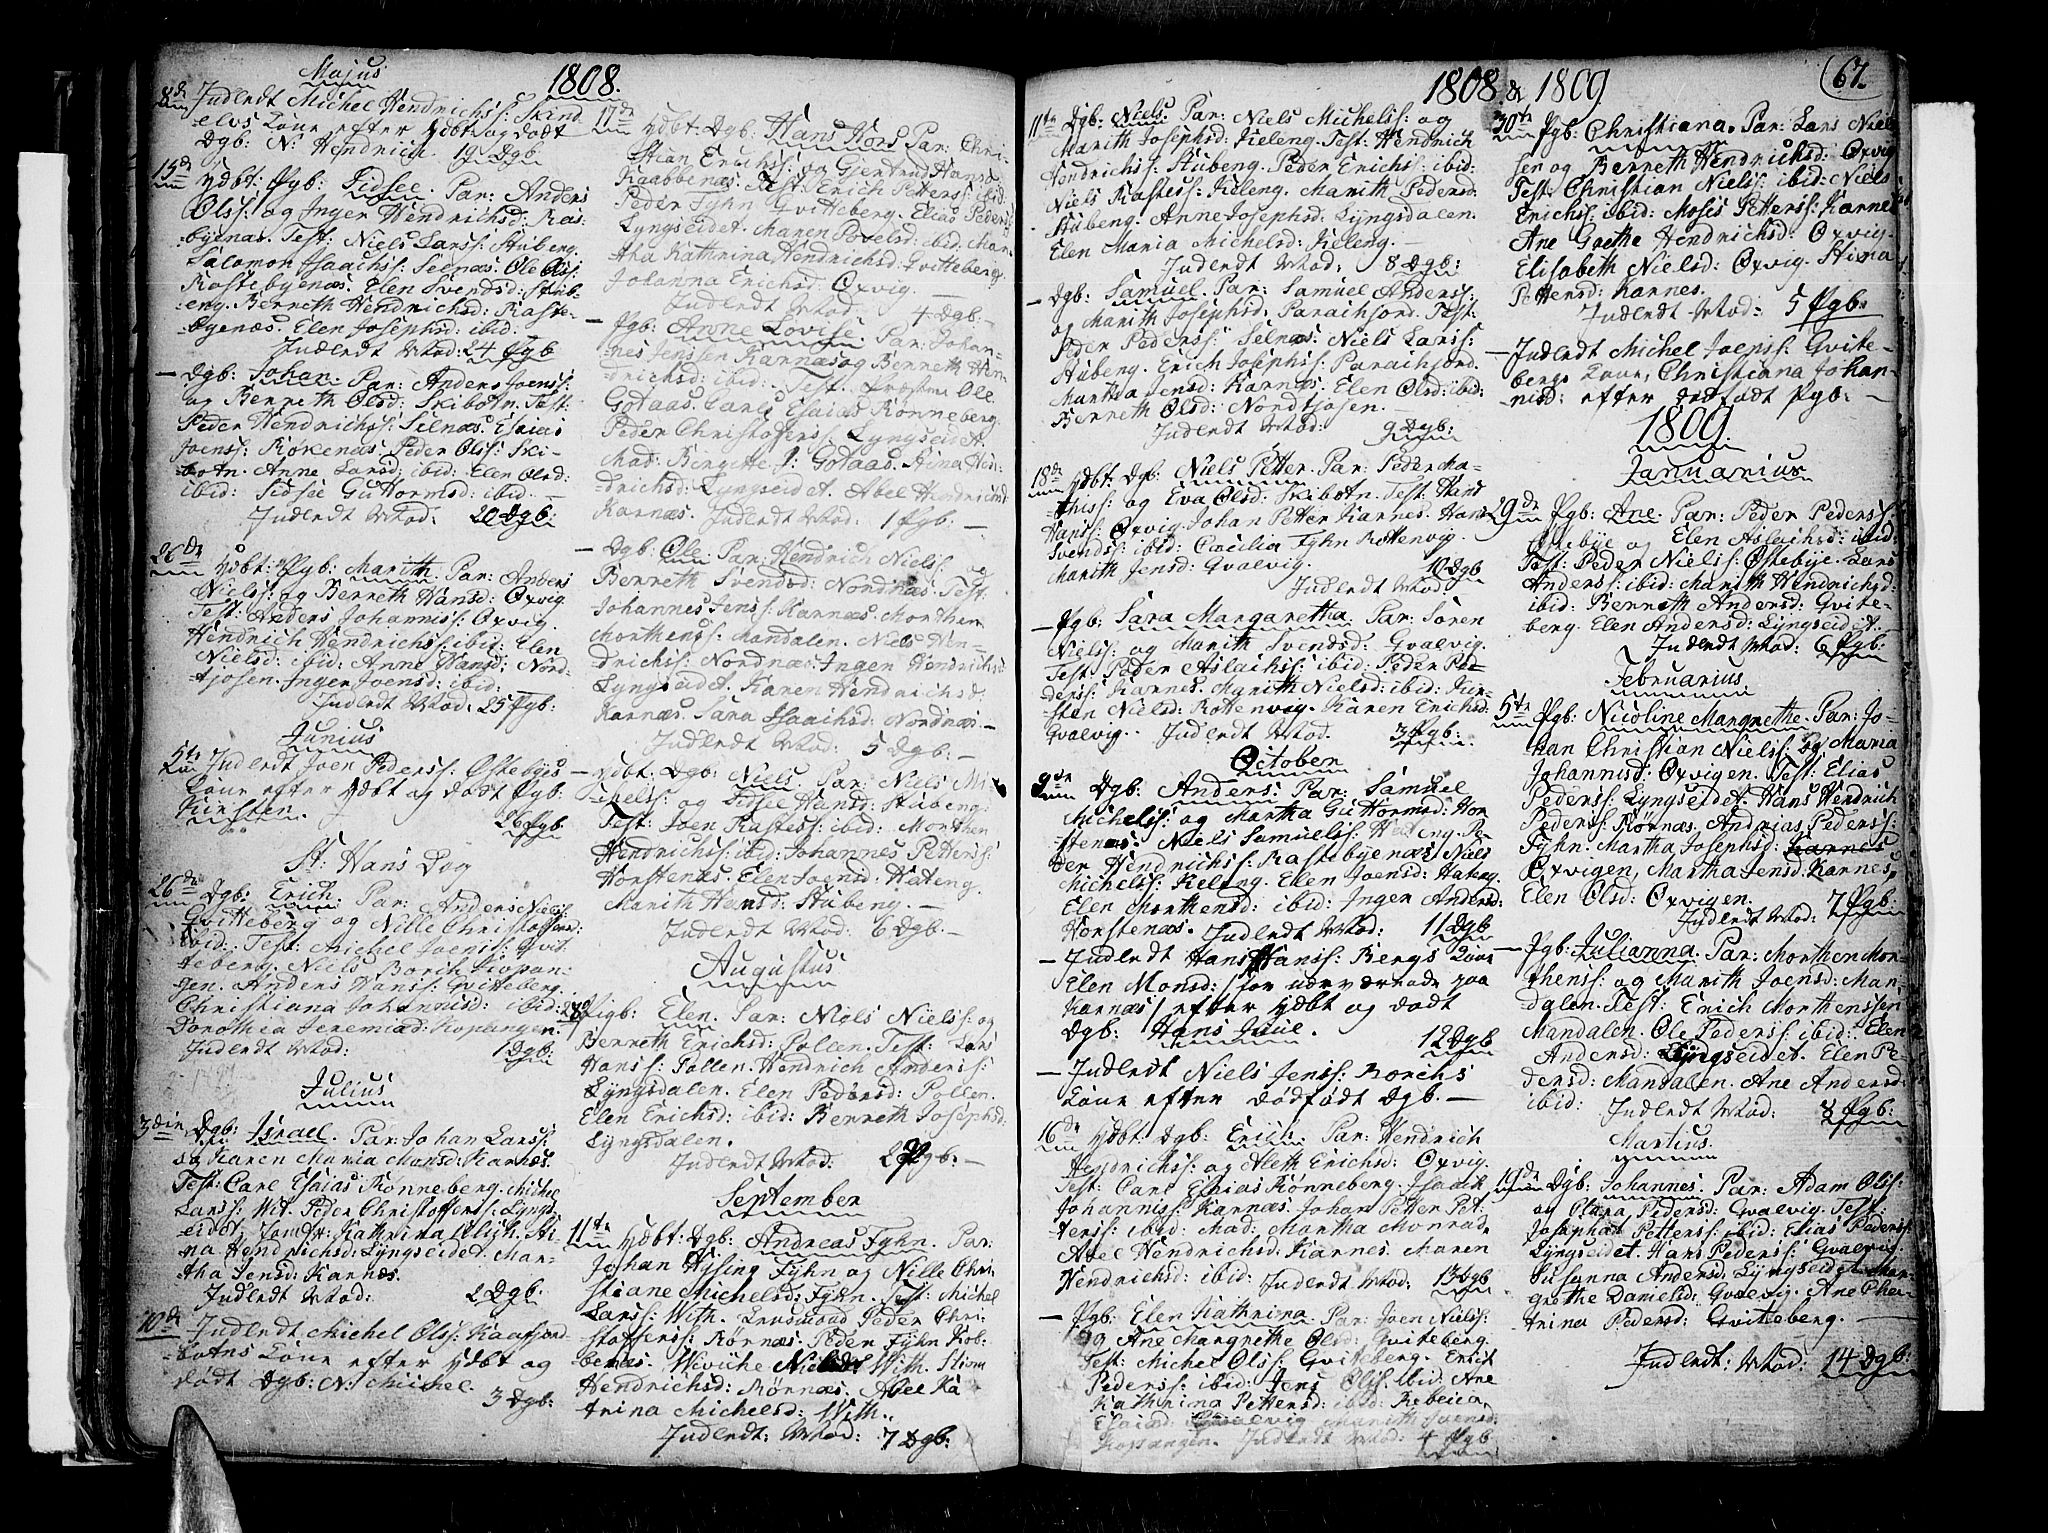 1808.
Majus
8de Indledt Michel Hendrichss: Skind
elvs Kone efter hdbt og dødt
Dgb: N: Hendrich. 19 Dgb
15de hdbt: Pgb: Sidsee. Par: Anders
Olss: og Inger Hendrichsd: Ras-
byenæs. Test: Niels Larss: Stuberg
Salomon Isaachss: Selnæs. Ole Olss:
Rastebyenæs. Elen Svendsd: Stub-
eng. Berreth Hendrichsd: Raste-
byenæs. Elen Josephsd: ibid:
Indledt Mod: 24 Pgb
- Dgb: Johan. Par: Anders Joenss:
og Berreth Olsd: Skibotn. Test:
Peder Hendrichss: Selnæs. Esaias
Joenss: Røkenæs. Peder Olss: Ski-
botn. Anne Larsd: ibid: Elen Olsd:
ibid: Sidsee Guttormsd: ibid.
Indledt Mod: 20 Dgb:
26de hdbt: Pgb: Marith. Par: Anders
Nielss: og Berreth Hansd: Oxvig.
Test: Anders Johanniss: Oxvig.
Hendrich Hendrichss: ibid: Elen
Nielsd: ibid: Anne Hansd: Nord-
kjosen. Inger Joensd: ibid:
Indledt Mod: 25 Pgb:
Junius
5te Indledt Joen Pederss: Østebyes
Kone efter hdbt og dødt Pgb:
Kirsten. 26 Pgb
St: Hans Dag
26de Dgb: Erich. Par: Anders Nielss:
Gvitteberg og Nille Christoffersd:
ibid: Test: Michel Joeniss: Gvit-
teberg. Niels Borch Kopan-
gen. Anders Hanss: Gvitteberg.
Christiana Johannisd: ibid:
Dorothea Jeremiæd: Kopangen.
Indledt Mod: 1 Dgb:
Julius
3die Dgb: Israel. Par: Johan Larss:
og Karen Maria Monsd: Karnæs.
Test: Carl Esaias Rønneberg. Michel
Larss: Wit. Peder Christofferss: Lyngs-
eidet. Jomfr: Kathrina Ulich. Sti-
na Hendrichsd: Lyngseidet. Mar-
tha Jensd: Karnæs.
Indledt Mod: 2 Dgb:
10de Indledt Michel Olss: Kaafjord-
botns Kone efter hdbt og
dødt Dgb: N: Michel.
3 Dgb:
17de hdbt: Dgb: Hans Hors Par: Chri-
stian Erichss: og Gjertrud Hansd:
Raabbenæs. Test: Erich Petterss: ibid:
Peder Fyhn Gvitteberg. Elias Pederss:
Lyngseidet. Maren Povelsd: ibid: Mar-
tha Kathrina Hendrichsd: Gvitteberg.
Johanna Erichsd: Oxvig.
Indledt Mod. 4 Dgb.
- Pgb: Anne Lovise. Par: Johan-
nes Jenssen Karnæs og Berreth Hen-
drichsd: ibid: Test. Ole
Gotaas. Carls Esaias Rønneberg.
Peder Christofferss: Lyngseidet.
Mad: Birgitte Gotaas. Stina Hen-
drichsd: Lyngseidet. Abel Hendrichsd
Karnæs. Indledt Mod: 1 Pgb:
- Dgb: Ole Par: Hendrich Nielss: og
Berreth Svendsd: Nordnæs. Test:
Johannes Jenss: Karnæs. Morthen
Morthenss: Mandalen. Niels Hen-
drichss: Nordnæs. Ingen Hendrichsd:
Lyngseidet. Karen Hendrichsd:
Karnæs. Sara Isaachsd: Nordnæs
Indledt Mod: 5 Dgb:
- hdbt: Dgb: Niels. Par: Niels Mi-
chelss: og Sidsee Hansd: Stuberg:
Test: Joen Rastess: ibid: Morthen
Hendrichss: ibid: Johannes Petterss:
Horstenæs. Elen Joensd: Hateng.
Marith Hansd: Stubeng.
Indledt Mod: 6 Dgb.
Augustus
28de Pigb: Elen. Par: Niels Nielss: og
Berreth Erichsd: Pollen. Test: Lars
Hanss: Pollen. Hendrich Anderss:
Lyngsdalen. Elen Pedersd: Pollen.
Elen Erichsd: ibid: Berreth Josephsd:
Lyngsdalen.
Indledt Mod: 2 Pgb:
September
11te hdbt: Dgb: Andreas Fyhn. Par:
Johan Hysing Fyhn og Nille Chri-
stiane Michelsd: Fyhn. Test: Michel
Larss: With. Peder Chri-
stofferss: Rørnæs. Peder Fyhn Rob-
benæs. Wivicke With. Stina
Hendrichsd: Rørnæs. Abel Ka-
trina Michelsd: With.
Indledt: Mod: 7 Dgb:
1808. & 1809
67.
11te Dgb: Niels. Par: Niels Michelss: og
Marith Josephsd: Kieleng. Test: Hendrich
Hendrichss: Stubeng. Peder Erichs: ibid:
Niels Rastess: Kieleng. Marith Pedersd
Stubeng. Anne Josephsd: Lyngsdalen.
Elen Maria Michelsd: Kieleng.
Indledt Mod: 8 Dgb:
- Dgb: Samuel. Par: Samuel Anderss:
og Marith Josephsd: Paraisfjord. Test:
Peder Pederss: Selnæs. Niels Larss:
Stubeng. Erich Josephss: Paraisfjord.
Martha Jensd: Karnæs. Elen Olsd: ibid:
Berreth Olsd: Nordkjosen.
Indledt Mod: 9 Dgb:
18de hdbt: Dgb: Niels Petter. Par: Peder Ma-
thiss: og Eva Olsd: Skibotn. Test: Hans
Hanss: Oxvig. Johan Petter Karnes. Hans
Svends: ibid: Cæcilia Fyhn Rottenvig.
Marith Jensd: Gvalvig. 10 Dgb
Indledt Mod
- Pgb: Sara Margaretha. Par: Søren
Nielss: og Marith Svendsd: Gvalvig.
Test: Peder Aslachss: ibid: Peder Pe-
derss: Karnes. Marith Nielsd: ibid: Kir-
sten Nielsd: Rottenvig. Karen Erichsd:
Gvalvig. Indledt Mod. 3 Pgb:
October
9de Dgb: Anders. Par: Samuel
Michelss: og Martha Guttormsd: Hor-
stenæs. Niels Samuelss: Hateng. Pe-
der Hendrichss: Rastebyenæs. Niels
Michelss: Keleng. Elen Joensd: Hateng.
Elen Morthensd: ibid: Inger Andersd:
Horstenæs. Indledt Mod: 11 Dgb
- Indledt Hans Hanss: Bergs Kone
Elen Monsd: /for nærværende paa
Karnæs/ efter hdbt og dødt
Dgb: Hans Juul. 12 Dgb
- Indledt Niels Jenss: Borchs
Kone efter dødfødt Dgb.
16de hdbt: Dgb: Erich. Par: Hendrich
Hendrichss: og Aleth Erichsd: Oxvig.
Test: Carl Esaias Rønneberg. Isaach
Johanniss: Karnæs. Johan Petter Pet-
terss: ibid: Mad: Martha Monrad.
Abel Hendrichsd: Karnes. Maren
Hendrichsd: ibid: Indledt Mod: 13 Dgb
- Pgb: Elen Kathrina. Par: Joen Nielss:
og Ane Margrethe Olsd: Gviteberg.
Test: Michel Olss: Gviteberg. Erich
Pederss: ibid: Jens Olss: ibid: Ane
Kathrina Pettersd: ibid: Rebecca
Esaiæd: Gvalvig Marith Joensd:
Kopangen. Indledt Mod: 4 Pgb
30te Pgb: Christiana. Par: Lars Niels-
sen og Berreth Hendrichsd: Oxvig
Test: Christian Nielss: ibid: Niels
Erichss: ibid: Mosis Petterss: Karnes
Ane Grethe Hendrichsd: Oxvig.
Elisabeth Nielsd: Oxvig. Stina
Pettersd: Karnes.
Indledt Mod: 5 Pgb:
- Indledt Michel Joenss: Gvite-
bergs Kone, Christiana Johan-
nisd: efter dødfødt Pgb:
1809.
Januarius
29de Pgb: Ane. Par: Peder Pederss:
Østebye og Elen Aslachsd: ibid:
Test: Peder Nielss: Østebye. Lars
Anderss: ibid: Marith Hendrichsd:
ibid: Berreth Andersd: Gvite-
berg. Elen Andersd: Lyngseidet.
Indledt Mod: 6 Pgb:
Februarius
5te Pgb: Nicoline Margrethe. Par: Jo-
han Christian Nielss: og Maria
Johannisd: Oxvigen. Test: Elias
Pederss: Lyngseidet. Hans Hendrich
Pederss: Rørnæs. Andrias Pederss:
Fyhn. Martha Josephsd: Karnes
Oxvigen, Martha Jensd: Karnes,
Elen Olsd: Oxvigen.
Indledt Mod: 7 Pgb:
- Pgb: Julianna. Par: Morthen Mor-
thenss: og Marith Joensd: Man-
dalen. Test: Erich Morthenssen
Mandalen. Ole Pederss: ibid: Elen
Andersd: Lyngseidet. Elen Pe-
dersd: Mandalen. Ane Andersd:
ibid: Indledt Mod: 8 Pgb:
Martius.
19de Dgb: Johannes. Par: Adam Olss:
og Clara Pedersd: Gvalvig. Test:
Josephat Petterss: ibid: Elias Pederss:
Lyngseidet. Hans Pederss: Gvalvig.
Susanna Andersd: Lyngseidet. Mar-
grethe Danielsd: Gvalvig. Ane Cha-
trina Pedersd: Gviteberg.
Indledt: Mod: 14 Dgb: